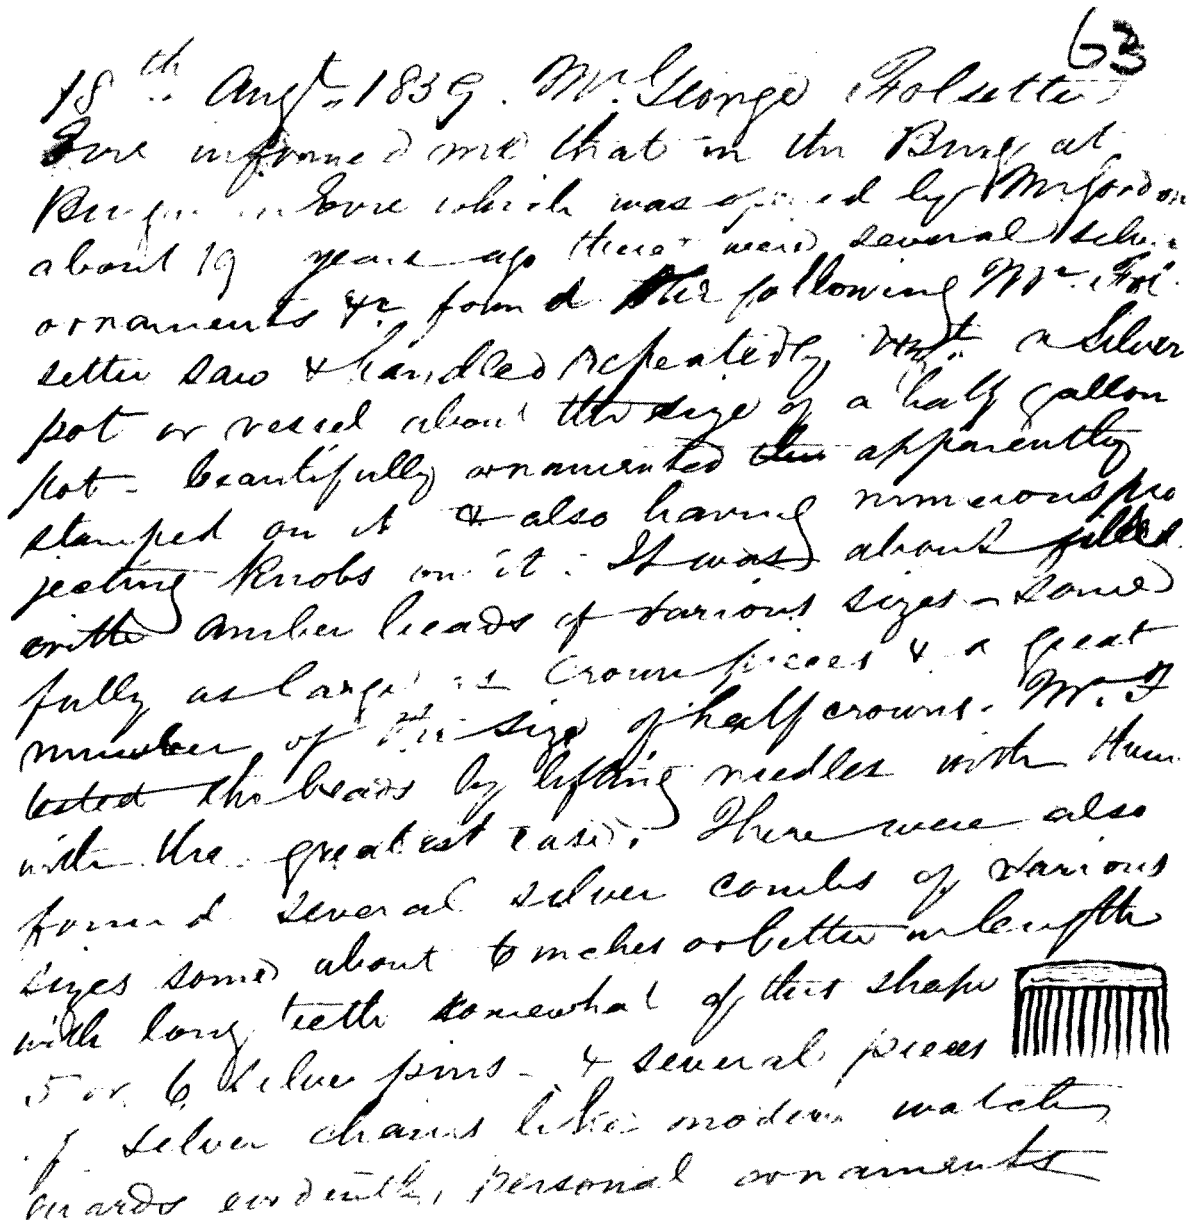 63
18th Augt. 1839. Mr. George Folsetter
Evie informed me that in the Burg at
Burgar in Evie which was opened by Mr Gordon
about 19 years ago there were several silver
ornaments &c found The following Mr. Fol
setter saw & handled repeatedly, a silver
pot or vessel about the size of a half gallon
pot - beautifully ornamented apparently
stamped on it & also having numerous pro
jecting knobs on it. It was about filled
with amber beads of various sizes - some
fully as large as crown pieces & a great
number of the size of half crowns. Mr. F
tested the beads by lifting needles with them
with the greatest ease. There were also
found several silver combs of various
sizes some about 6 inches or better in length
with long teeth somewhat of this shape
5 or 6 silver pins - & several pieces
of silver chains like modern watch
guards evidently personal ornaments